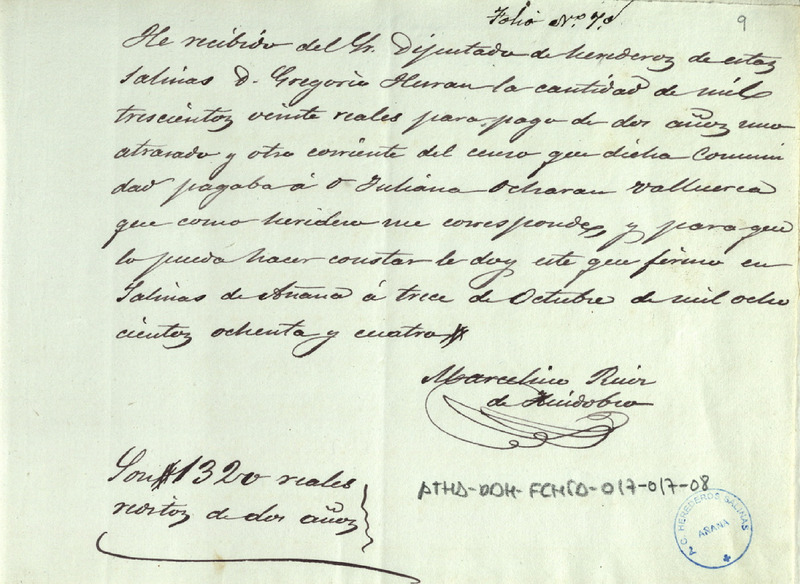 Folio Nº. 7.º
9
He recibido del Sr. Diputado de herederos de estas
Salinas D. Gregorio Huran la cantidad de mil
trescientos veinte reales para pago de dos años uno
atrasado y otro corriente del censo que dicha Comuni
dad pagaba á D Juliana Ocharan Valluerca
que como heridero me corresponde, y para que
lo pueda hacer constar le doy este que firmo en
Salinas de Añana á trece de Octubre de mil ocho
cientos ochenta y cuatro
Marcelino Ruiz
de Huidobro
Son 1320 reales
reditos de dos años
ATHA-DDH-FCHSD-017-017-08
C. HEREDEROS SALINAS
AÑANA